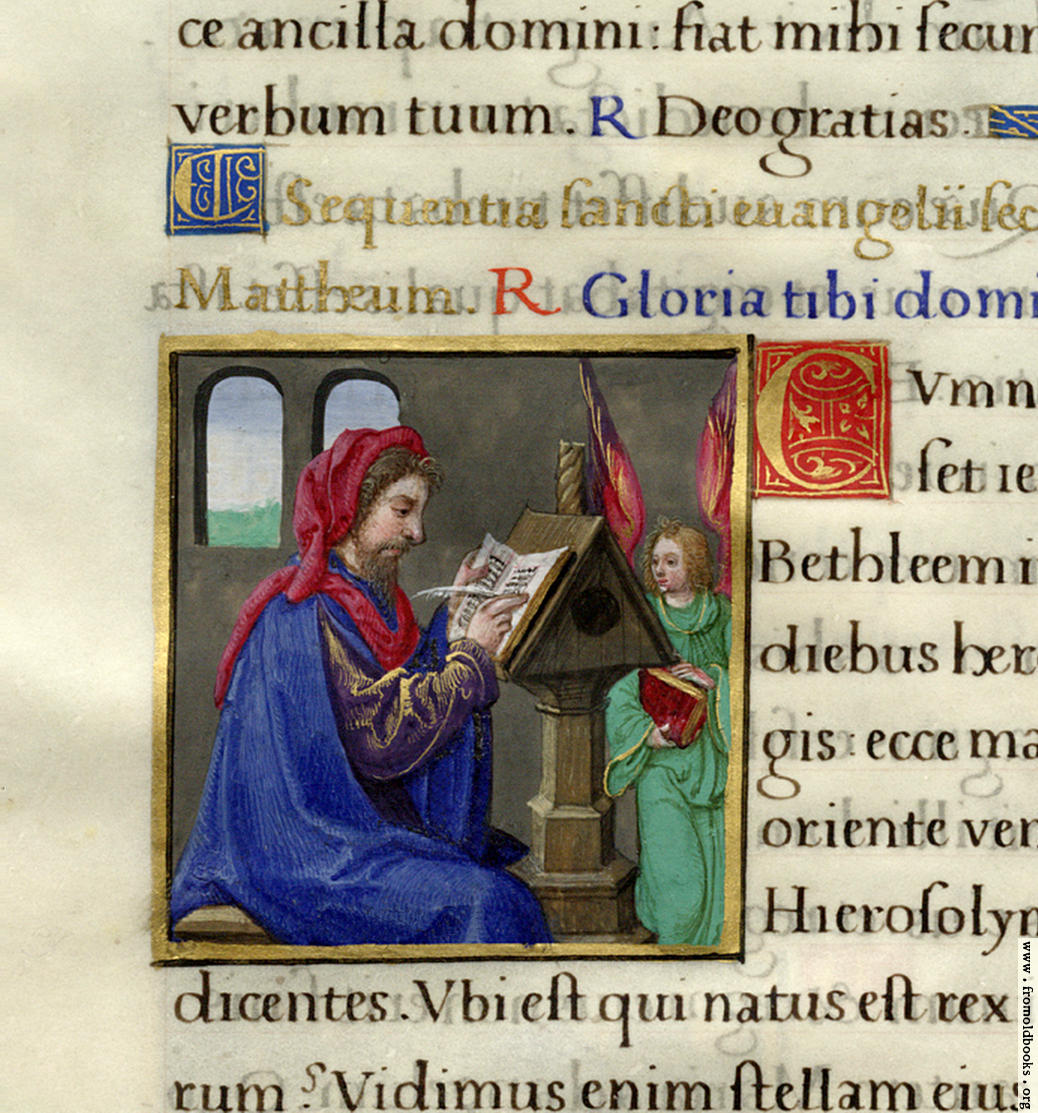 ce ancilla domini: fiat mihi secun
verbum tuum. R Deo gratias.
Sequentia sancti euangelii sec
Mattheum. R Gloria tibi domi
CVmn
set ie
Bethleem i
diebus her
gis: ecce ma
oriente ven
Hierosolym
dicentes. Vbi est qui natus est rex
rum? Vidimus enim stellam eius
www.fromoldbooks.org